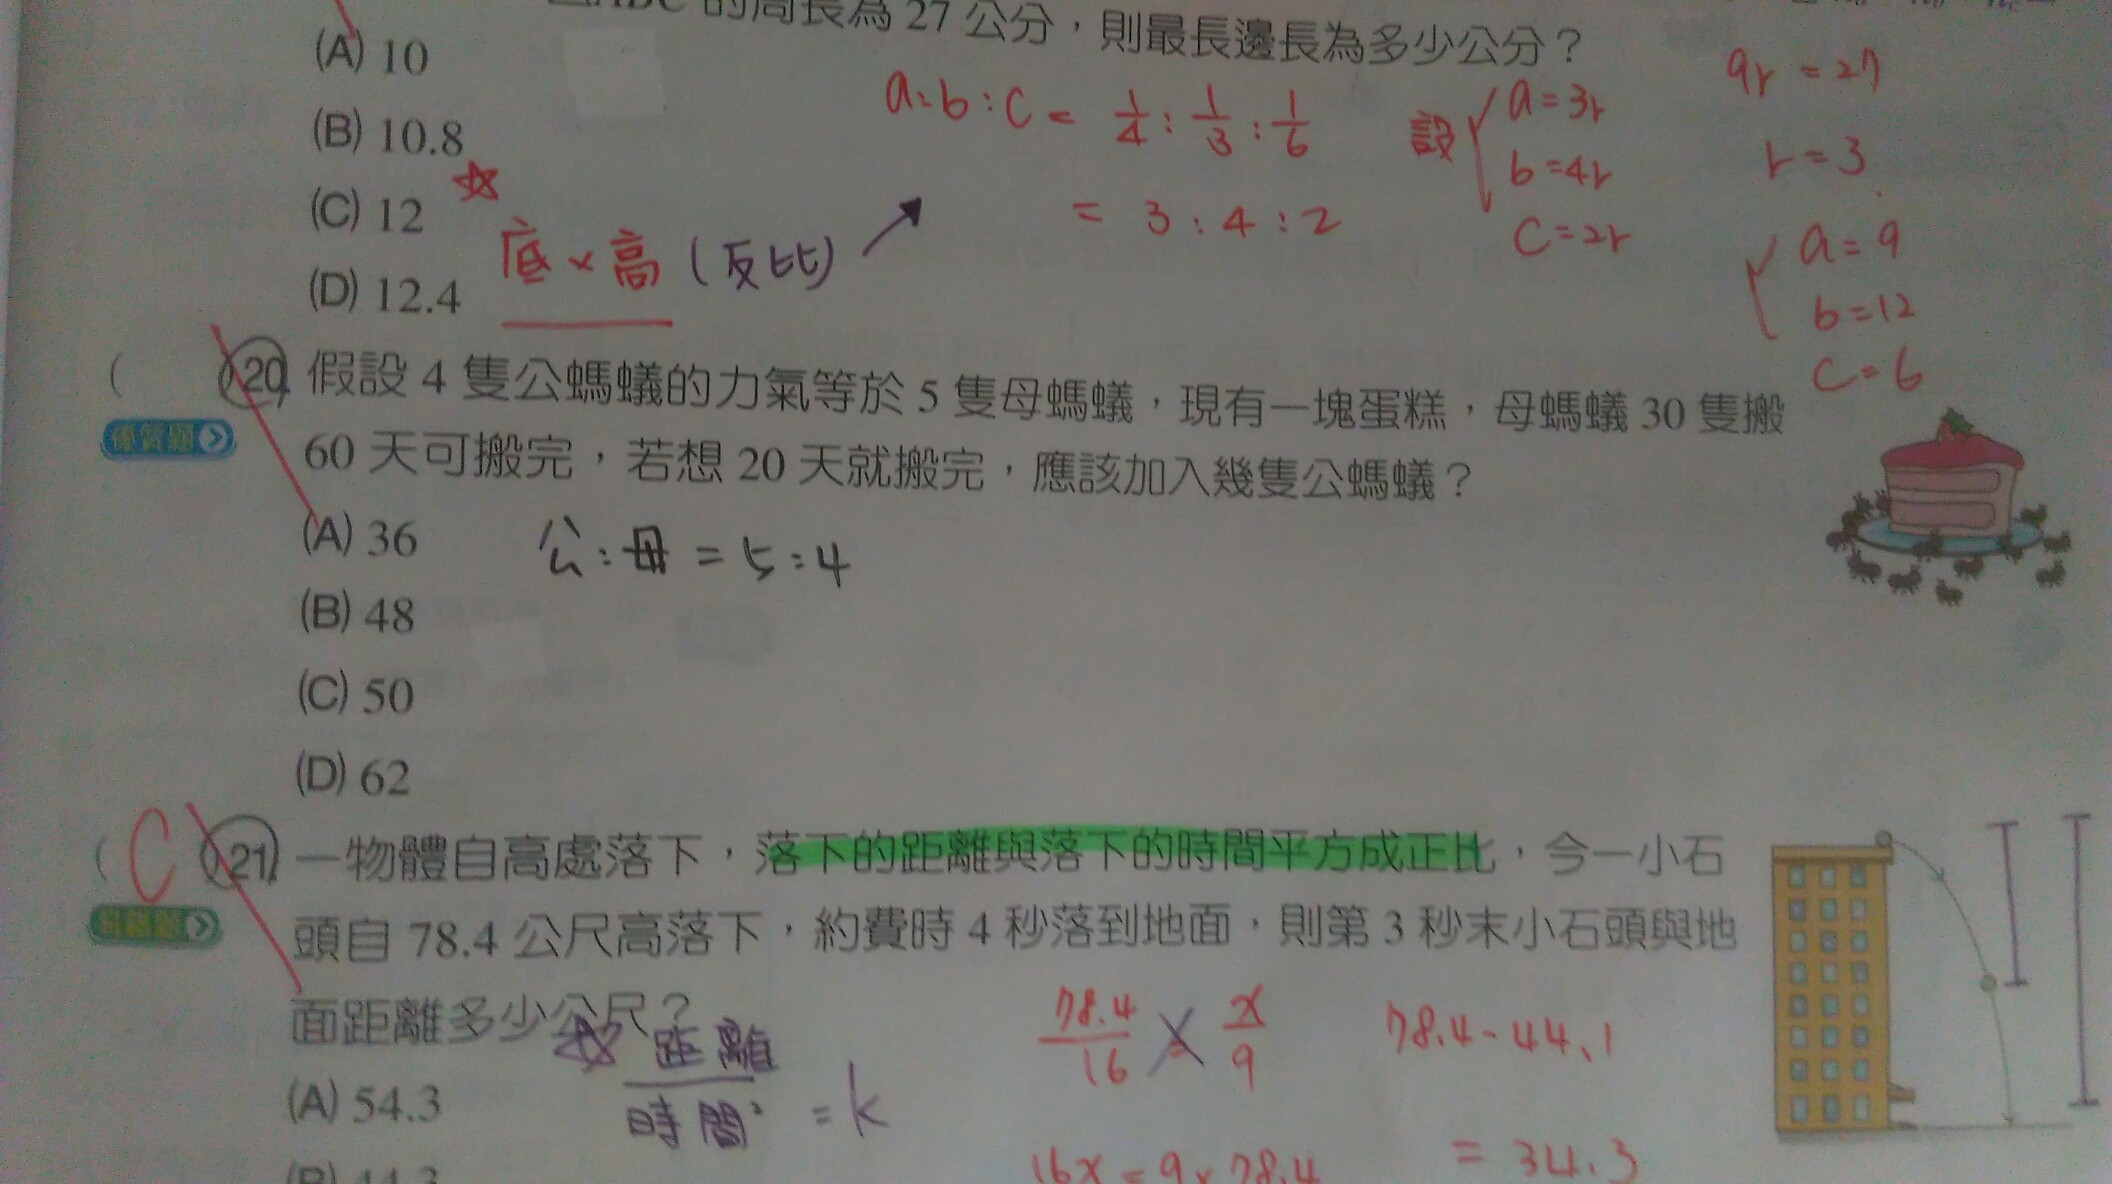 的周長為 27 公分，則最長邊長為多少公分？
(A) 10
(B) 10.8
(C) 12
(D) 12.4
☆ 底×高 (反比) ↗
a:b:c = 1/4 : 1/3 : 1/6
= 3:4:2
設 a=3r
b=4r
c=2r
9r=27
r=3
a=9
b=12
c=6
( 20. 假設 4 隻公螞蟻的力氣等於 5 隻母螞蟻，現有一塊蛋糕，母螞蟻 30 隻搬
60 天可搬完，若想 20 天就搬完，應該加入幾隻公螞蟻？
(A) 36
(B) 48
(C) 50
(D) 62
公:母=5:4
( C ) 21. 一物體自高處落下，落下的距離與落下的時間平方成正比，今一小石
頭自 78.4 公尺高落下，約費時 4 秒落到地面，則第 3 秒末小石頭與地
面距離多少公尺？
(A) 54.3
☆ 距離/時間² = k
78.4/16 = x/9
16x=9×78.4
78.4-44.1
=34.3